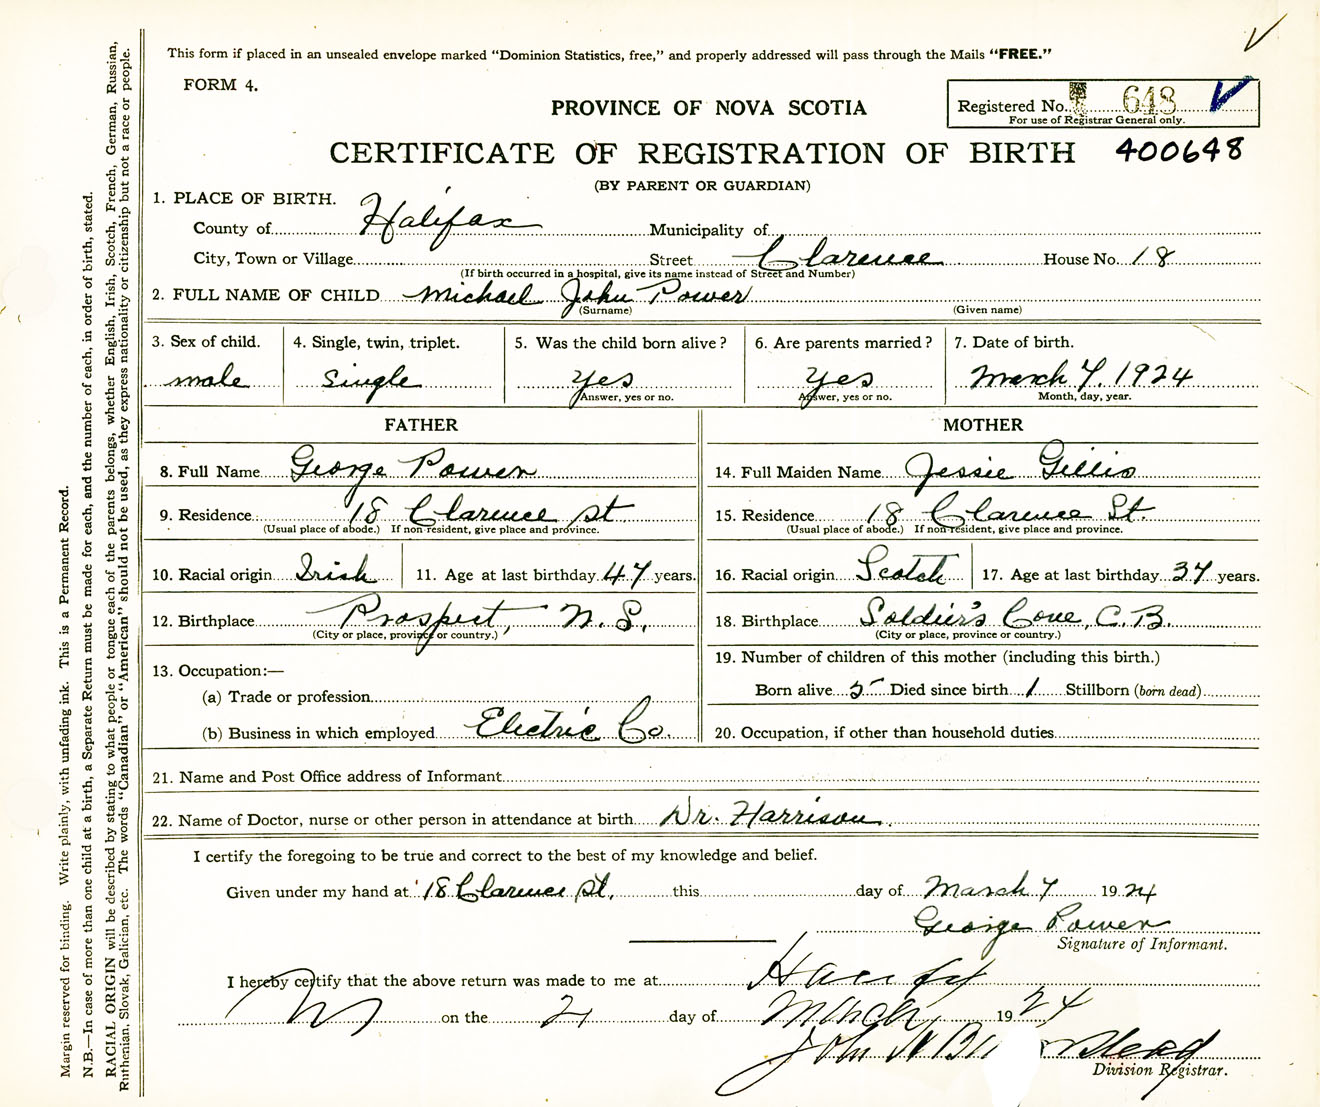 This form if placed in an unsealed envelope marked "Dominion Statistics, free," and properly addressed will pass through the Mails "FREE."
FORM 4.
PROVINCE OF NOVA SCOTIA
Registered No. 648
For use of Registrar General only.
CERTIFICATE OF REGISTRATION OF BIRTH 400648
(BY PARENT OR GUARDIAN)
1. PLACE OF BIRTH.
County of Halifax Municipality of
City, Town or Village Street Clarence House No. 18
(If birth occurred in a hospital, give its name instead of Street and Number)
2. FULL NAME OF CHILD Michael John Power
(Surname) (Given name)
3. Sex of child. 4. Single, twin, triplet. 5. Was the child born alive? 6. Are parents married? 7. Date of birth.
male Single Yes Yes March 7. 1924
Answer, yes or no. Answer, yes or no. Month, day, year.
FATHER MOTHER
8. Full Name George Power 14. Full Maiden Name Jessie Gillis
9. Residence 18 Clarence St 15. Residence 18 Clarence St.
(Usual place of abode.) If nonresident, give place and province. (Usual place of abode.) If non-resident, give place and province.
10. Racial origin Irish 11. Age at last birthday 47 years. 16. Racial origin Scotch 17. Age at last birthday 37 years.
12. Birthplace Prospect, N.S. 18. Birthplace Soldier's Cove, C.B.
(City or place, province or country.) (City or place, province or country.)
19. Number of children of this mother (including this birth.)
13. Occupation:—
(a) Trade or profession Born alive 5 Died since birth 1 Stillborn (born dead)
(b) Business in which employed Electric Co. 20. Occupation, if other than household duties
21. Name and Post Office address of Informant
22. Name of Doctor, nurse or other person in attendance at birth Dr. Harrison.
I certify the foregoing to be true and correct to the best of my knowledge and belief.
Given under my hand at 18 Clarence St. this day of March 7 1924
George Power
Signature of Informant.
I hereby certify that the above return was made to me at
on the 21 day of March 1924
John W B
Division Registrar.
Margin reserved for binding. Write plainly, with unfading ink. This is a Permanent Record.
N.B.—In case of more than one child at a birth, a Separate Return must be made for each, and the number of each, in order of birth, stated.
RACIAL ORIGIN will be described by stating to what people or tongue each of the parents belongs, whether English, Irish, Scotch, French, German, Russian,
Ruthenian, Slovak, Galician, etc. The words "Canadian" or "American" should not be used, as they express nationality or citizenship but not a race or people.